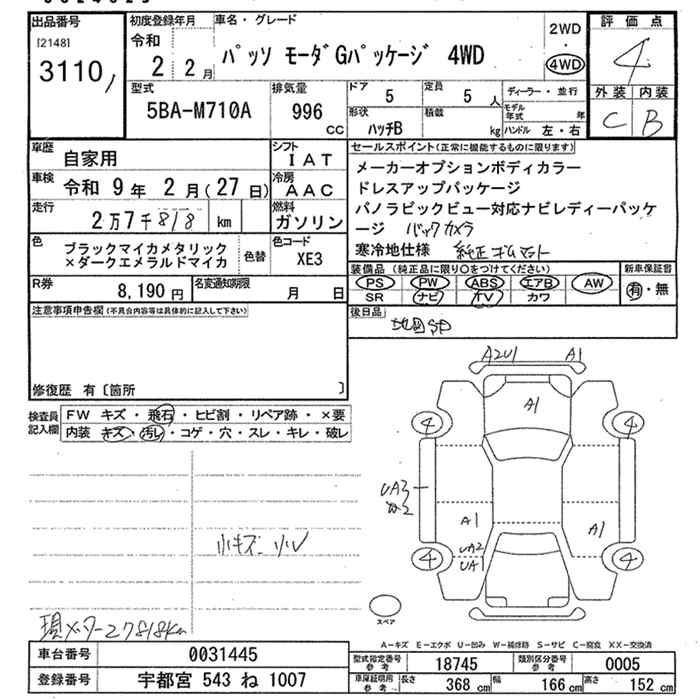 出品番号
[2148]
3110
初度登録年月
令和
2 2月
車名・グレード
パッソ モーダGパッケージ 4WD
2WD
・
4WD
評価点
4
外装 内装
C B
型式
5BA-M710A
排気量
996
CC
ドア
5
定員
5人
形状
ハッチB
積載
kg
ディーラー・並行
モデル年式 年
ハンドル 左・右
車歴
自家用
シフト
IAT
車検
令和 9年 2月(27日)
冷房
AAC
走行
2万7千818 km
燃料
ガソリン
色
ブラックマイカメタリック
×ダークエメラルドマイカ
色替
色コード
XE3
R券
8,190円
名変通知期限
月 日
セールスポイント(正常に機能するものに限ります)
メーカーオプションボディカラー
ドレスアップパッケージ
パノラミックビュー対応ナビレディーパッケ
ージ バックカメラ
寒冷地仕様 純正ゴムマット
装備品(純正品に限り○をつけてください)
PS PW ABS エアB AW
SR ナビ TV カワ
新車保証書
有・無
後日品
地図SD
注意事項申告欄(不具合内容等は具体的に記入して下さい)
修復歴 有〔箇所 〕
検査員
記入欄
FW キズ・飛石・ヒビ割・リペア跡・×要
内装 キズ・汚レ・コゲ・穴・スレ・キレ・破レ
小キズ 小U
現メーター27818km
A2U1 A1
A1
4 4
UA3
W2
A1 A1
UA2
UA1
4 4
スペア
A-キズ E-エクボ U-凹み W-補修跡 S-サビ C-腐食 XX-交換済
車台番号
0031445
登録番号
宇都宮 543 ね 1007
型式指定番号
参考
18745
類別区分番号
参考
0005
車庫証明用
参考
長さ 368 cm 幅 166 cm 高さ 152 cm